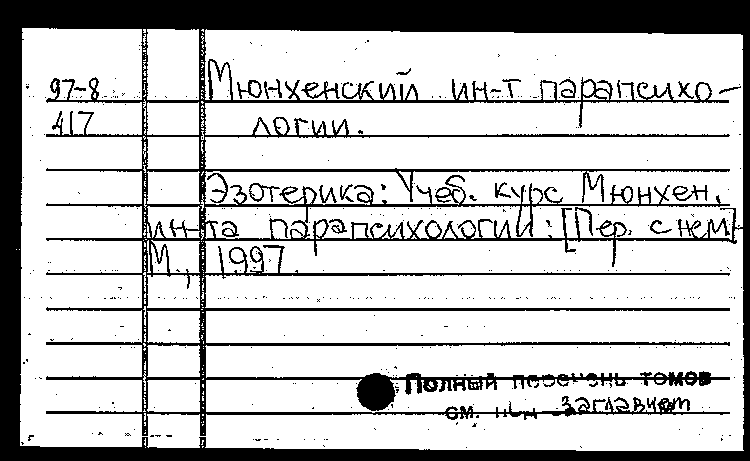 97-8 Мюнхенский ин-т парапсихо-
417 логии.
Эзотерика: Учеб. курс Мюнхен.
ин-та парапсихологии: [Пер. с нем]-
М., 1997.
Полный перечень томов
см. заглавием